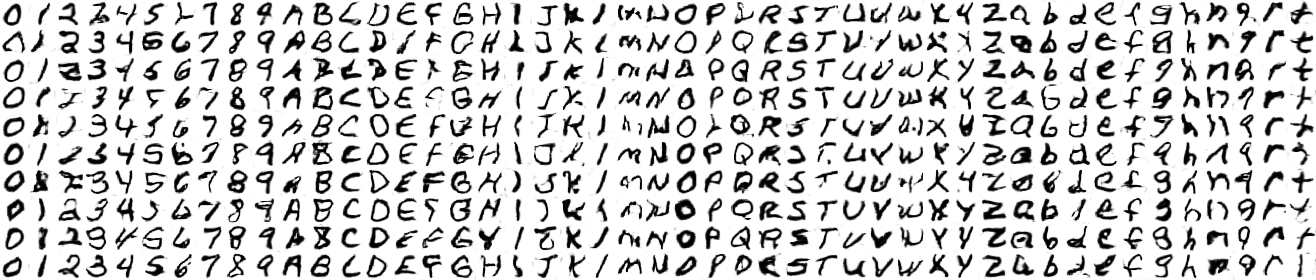 0 1 2 3 4 5 6 7 8 9 A B C D E F G H I J K l m N O P Q R S T U V W X Y Z a b d e f g h n q r t
0 1 2 3 4 5 6 7 8 9 A B C D E F G H I J K l m N O P Q R S T U V W X Y Z a b d e f g h n q r t
0 1 2 3 4 5 6 7 8 9 A B C D E F G H I J K l m N O P Q R S T U V W X Y Z a b d e f g h n q r t
0 1 2 3 4 5 6 7 8 9 A B C D E F G H I J K l m N O P Q R S T U V W X Y Z a b d e f g h n q r t
0 1 2 3 4 5 6 7 8 9 A B C D E F G H I J K l m N O P Q R S T U V W X Y Z a b d e f g h n q r t
0 1 2 3 4 5 6 7 8 9 A B C D E F G H I J K l m N O P Q R S T U V W X Y Z a b d e f g h n q r t
0 1 2 3 4 5 6 7 8 9 A B C D E F G H I J K l m N O P Q R S T U V W X Y Z a b d e f g h n q r t
0 1 2 3 4 5 6 7 8 9 A B C D E F G H I J K l m N O P Q R S T U V W X Y Z a b d e f g h n q r t
0 1 2 3 4 5 6 7 8 9 A B C D E F G Y I J K l m N O P Q R S T U V W X Y Z a b d e f g h n q r t
0 1 2 3 4 5 6 7 8 9 A B C D E F G H I J K l m N O P Q R S T U V W X Y Z a b d e f g h n q r t